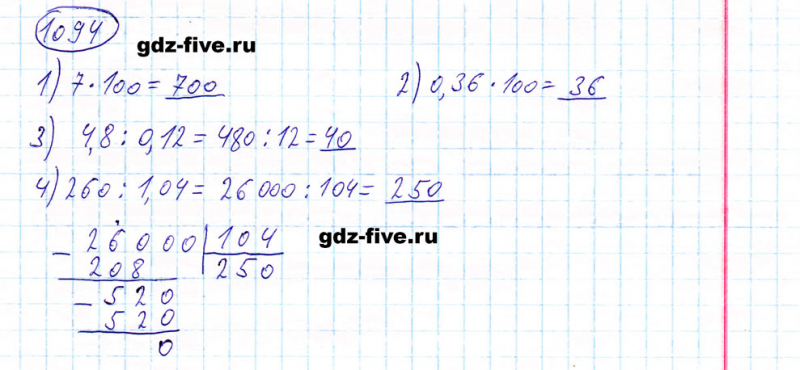 1094
gdz-five.ru
1) 7 · 100 = 700
2) 0,36 · 100 = 36
3) 4,8 : 0,12 = 480 : 12 = 40
4) 260 : 1,04 = 26 000 : 104 = 250
gdz-five.ru
– 26000 | 104
208 | 250
– 520
520
0